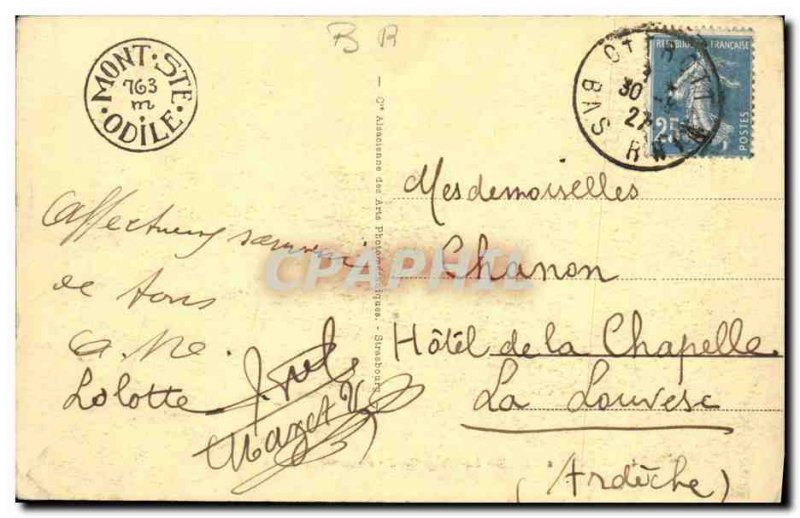 B R
MONT·STE
763
m
·ODILE·
OTTROTT
30
27
BAS RHIN
REPUBLIQUE FRANÇAISE
25
POSTES
— Cie Alsacienne des Arts Photomécaniques. - Strasbourg
Affectueux souvenir
de tous
Lolotte
Mesdemoiselles
Chanon
Hôtel de la Chapelle
La Louvesc
(Ardèche)
CPAPHIL